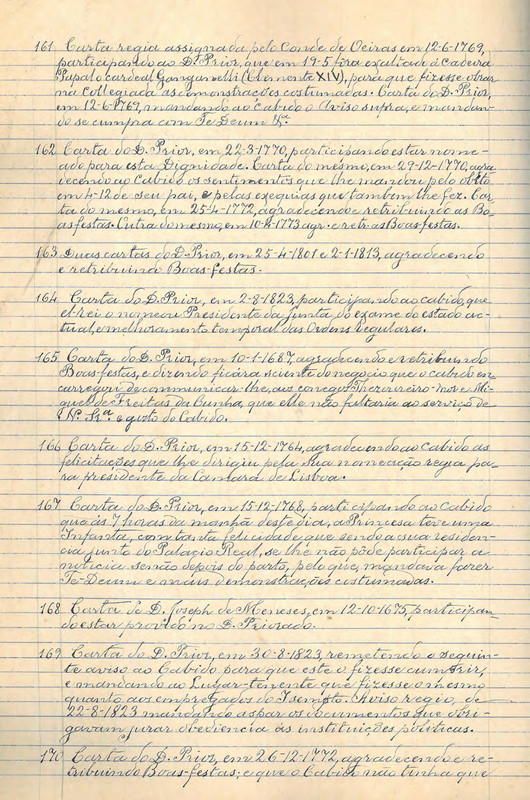 161 Carta regia assignada pelo Conde de Oeiras em 12-6-1769,
participando ao D. Prior, que em 19-5 fôra exaltado á cadeira
Papal o cardeal Ganganelli (Clemente XIV), para que fizesse obrar
na Collegiada as demonstrações costumadas. Carta do D. Prior,
em 12-6-1769, mandando ao cabido o Aviso supra, e mandan-
do se cumpra com Te Deum &a.
162 Carta do D. Prior, em 22-3-1770, participando estar nome-
ado para esta Dignidade. Carta do mesmo, em 29-12-1770, agra
decendo ao Cabido os sentimentos que lhe mandou pelo obito
em 4-12 de seu pai, e pelas exequias que tambem lhe fez. Car
ta do mesmo, em 25-4-1772, agradecendo e retribuindo as Bo-
as festas. Outra do mesmo, em 10-4-1773 agr. e retr. as Boas festas.
163 Duas cartas do D. Prior, em 25-4-1801 e 2-1-1813, agradecendo
e retribuindo Boas-festas.
164 Carta do D. Prior, em 2-8-1823, participando ao cabido, que
el-rei o nomeou Presidente da Junta do exame do estado ac-
tual, e melhoramento temporal das Ordens Regulares.
165 Carta do D. Prior, em 10-1-1687, agradecendo e retribuindo
Boas-festas, e dizendo ficára sciente do negocio que o cabido en-
carregou de communicar-lhe, aos conegos Thezoureiro-mor e Mi-
guel de Freitas da Cunha, que elle não faltaria ao serviço de
N. Sra. e gosto do Cabido.
166 Carta do D. Prior, em 15-12-1764, agradecendo ao Cabido as
felicitações que lhe dirigiu pela sua nomeação regia pa-
ra presidente da Camara de Lisboa.
167 Carta do D. Prior, em 15-12-1768, participando ao Cabido
que ás 7 horas da manhã deste dia, a Princesa teve uma
Infanta, com tanta felicidade que sendo a sua residen-
cia junto do Palacio Real, se lhe não pôde participar a
noticia senão depois do parto, pelo que, mandava fazer
Te-Deum e mais demonstrações costumadas.
168 Carta de D. Joseph de Meneses, em 12-10-1675, participan-
do estar provido no D. Priorado.
169 Carta do D. Prior, em 30-8-1823, remetendo o seguin-
te aviso ao Cabido para que este o fizesse cumprir,
e mandando ao Lugar-tenente que fizesse o mesmo
quanto aos empregados do Isempto. Aviso regio, de
22-8-1823 mandando aspar os documentos que obri-
gavam jurar obediencia ás instituições politicas.
170 Carta do D. Prior, em 26-12-1772, agradecendo e re-
tribuindo Boas-festas; e que o Cabido não tinha que